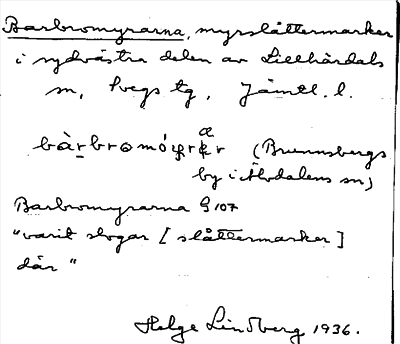 Barbromyrarna, myrslåttermarker
i sydvästra delen av Lillhärdals
sn, Svegs tg, Jämtl. l.
(Brunnsbergs
by i Älvdalens sn)
Barbromyrarna G 107
"varit slogar [slåttermarker]
där"
Helge Lindberg 1936.